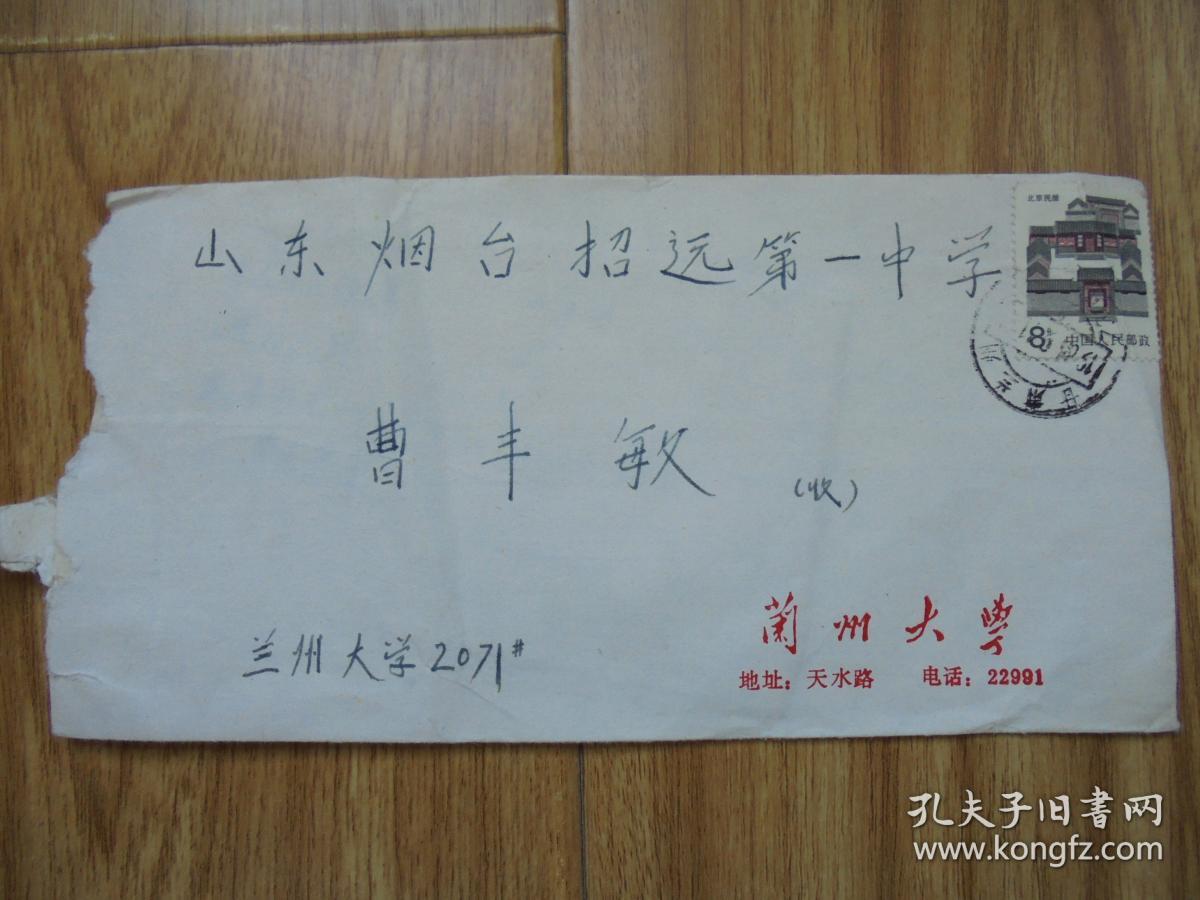 山东烟台招远第一中学
北京民居
8分
中国人民邮政
甘肃兰州
曹丰敏
(收)
兰州大学2071#
蘭州大學
地址：天水路 电话：22991
孔夫子旧书网
www.kongfz.com